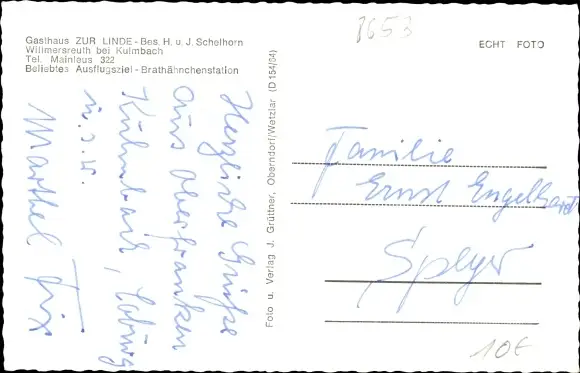 8653
Gasthaus ZUR LINDE - Bes. H. u. J. Schelhorn
Willmersreuth bei Kulmbach
Tel. Mainleus 322
Beliebtes Ausflugsziel - Brathähnchenstation
ECHT FOTO
Herzliche Grüße
aus Oberfranken
Kulmbach, Coburg
u.s.w.
Marthel Fix
Foto u. Verlag J. Grüttner, Oberndorf/Wetzlar (D 154/64)
Familie
Ernst Engelhardt
Speyer
10€